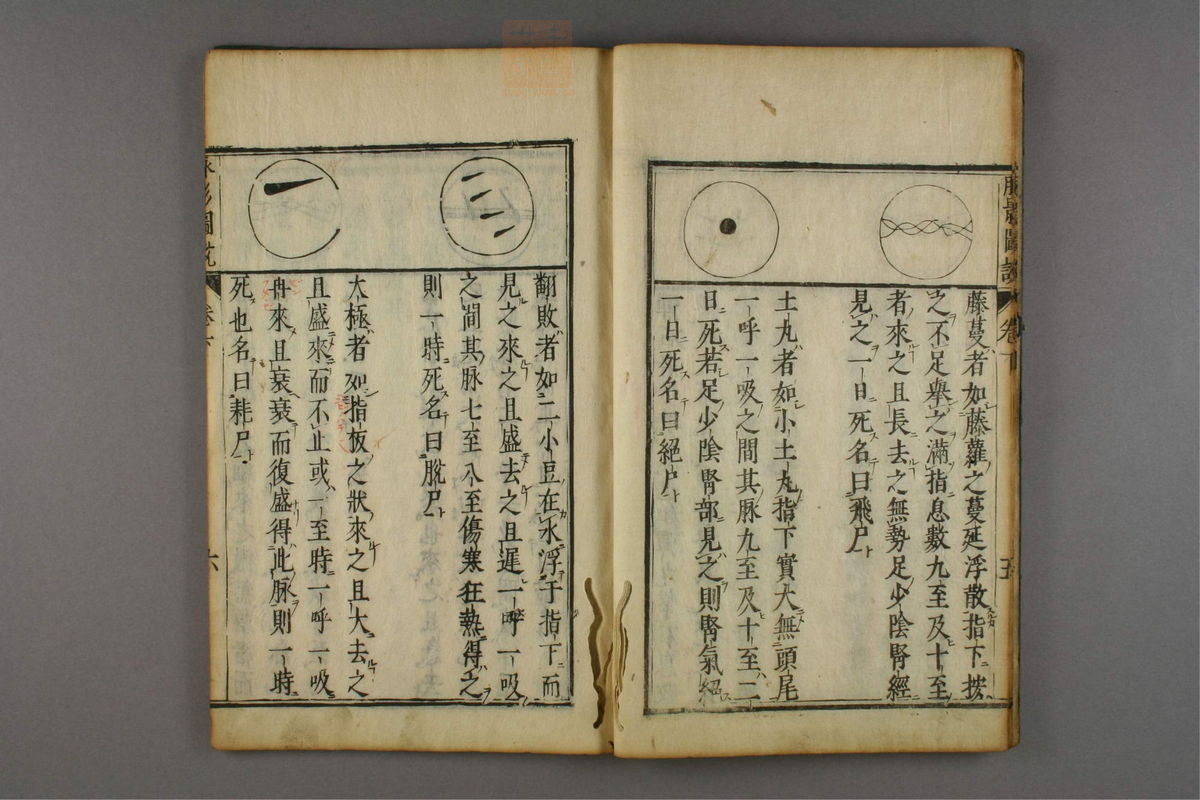 藤蔓者如藤蘿之蔓延浮散指下按
之不足舉之滿指息數九至及十至
者來之且長去之無勢足少陰腎經
見之一日死名曰飛尸
土丸者如小土丸指下實大無頭尾
一呼一吸之間其脉九至及十至二
日死若足少陰腎部見之則腎氣絕
一日死名曰絕尸
五
翻敗者如二小豆在水浮于指下而
見之來之且盛去之且遲一呼一吸
之間其脉七至八至傷寒狂熱得之
則一時死名曰脫尸
太極者如指板之狀來之且大去之
且盛來而不止或一至時一呼一吸
再來且衰衰而復盛得此脉則一時
死也名曰耗尸
六